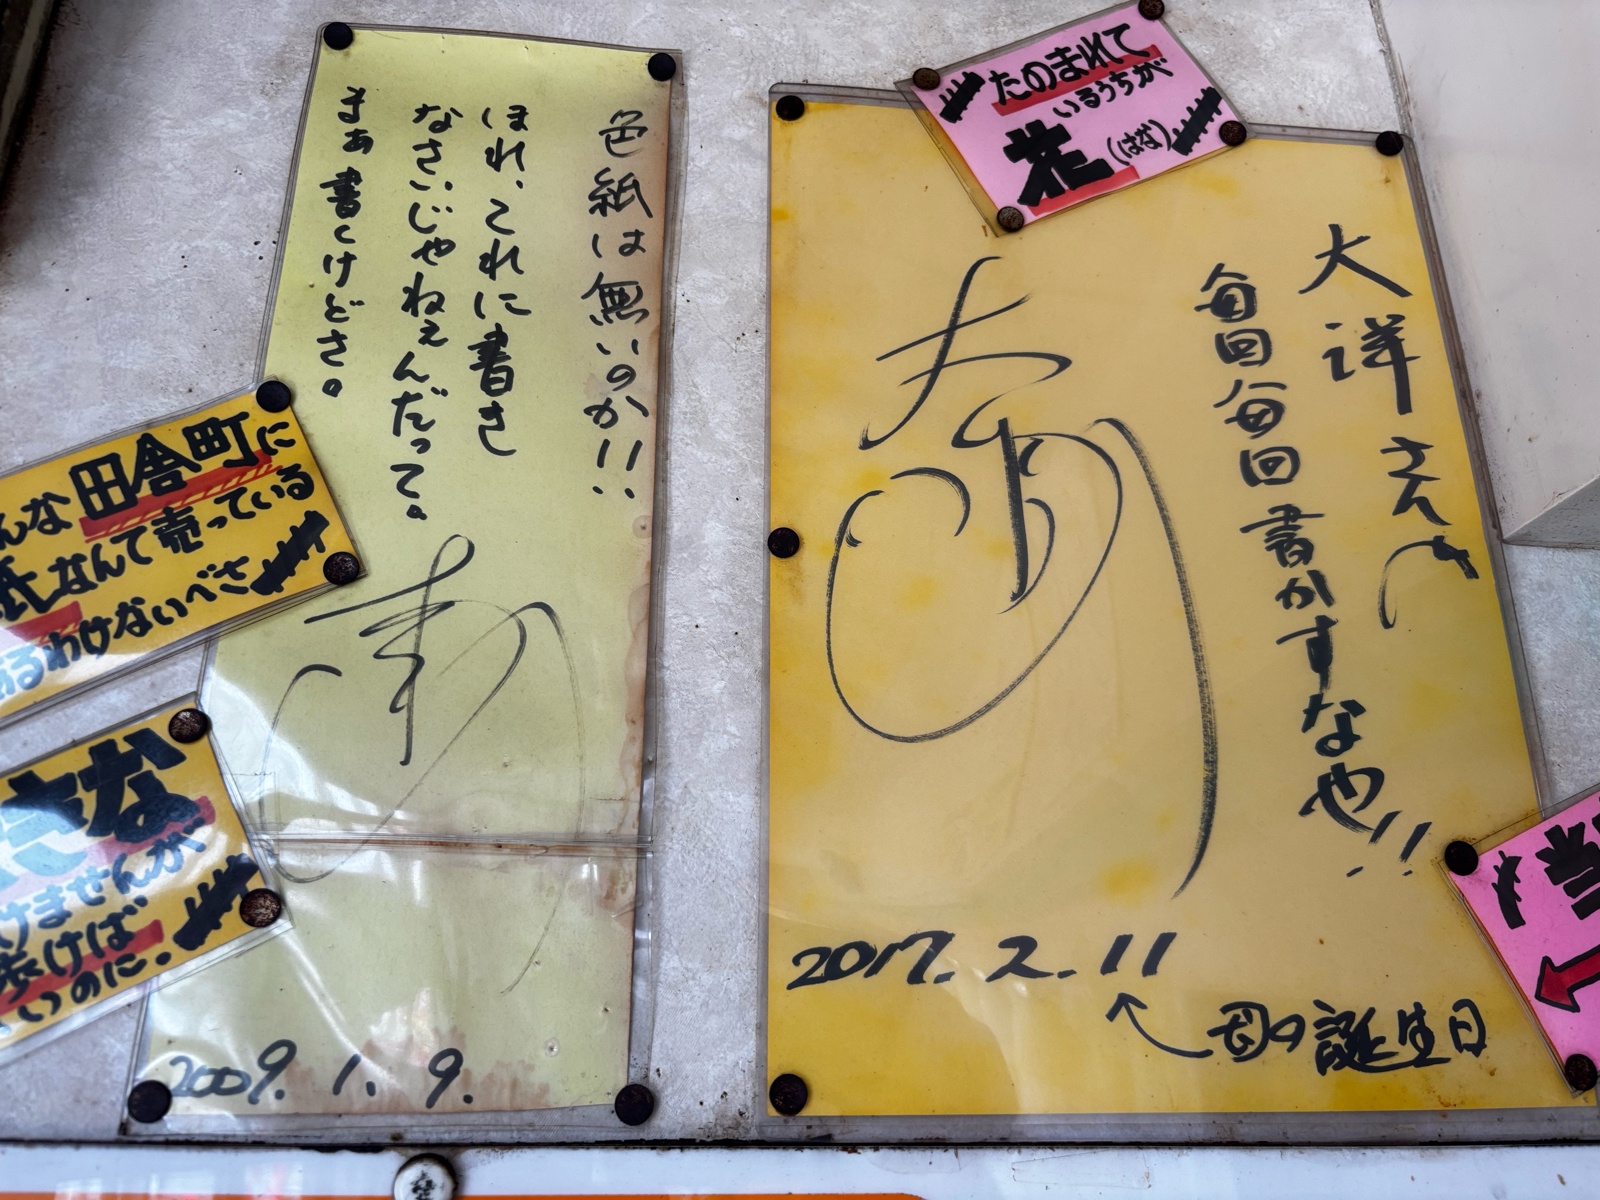 色紙は無いのか!!
ほれ、これに書き
なさいじゃねぇんだって。
まぁ書くけどさ。
2009. 1. 9.
んな田舎町に
紙なんて売っている
あるわけないべさ
きな
けませんが
歩けば
いのに.
たのまれて
いるうちが
花(はな)
大洋さんや
毎回毎回書かすなや!!
2017. 2. 11
母の誕生日
当